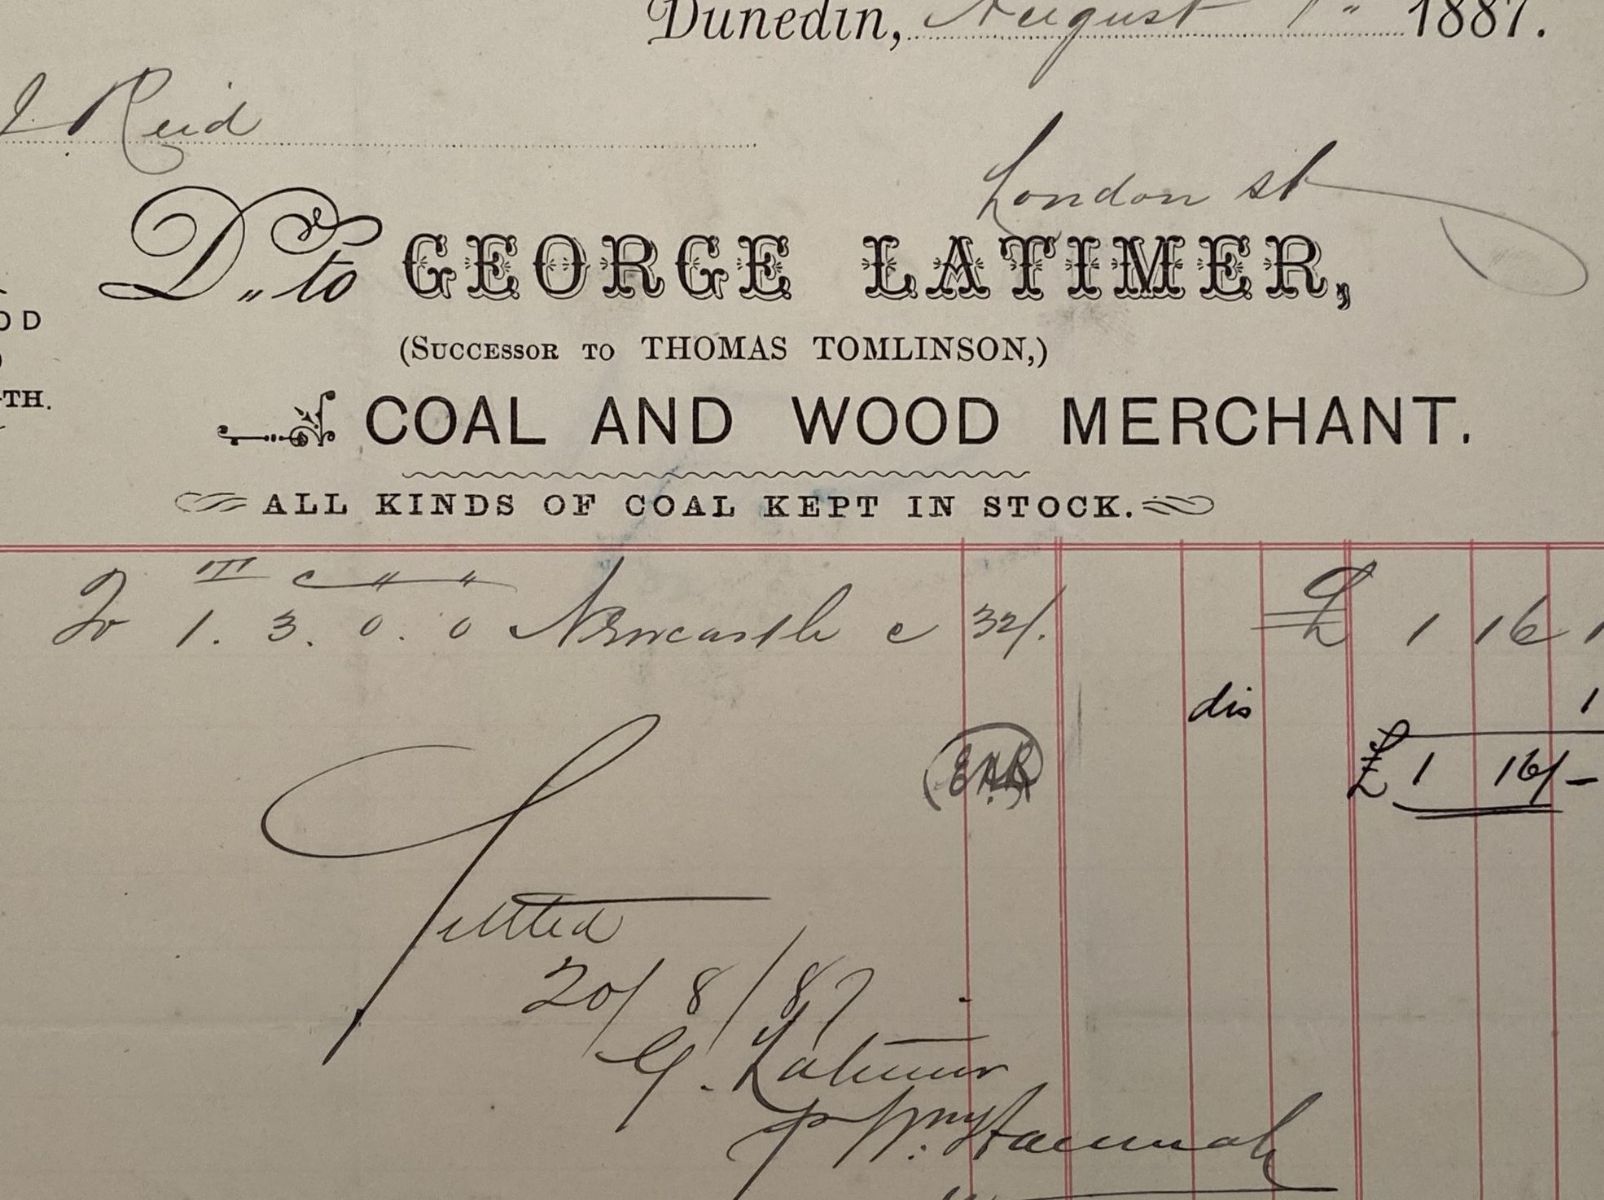 Dunedin, August 1st 1887.
J Reid
London st
Dr. to GEORGE LATIMER,
OD
(SUCCESSOR TO THOMAS TOMLINSON,)
TH.
COAL AND WOOD MERCHANT.
ALL KINDS OF COAL KEPT IN STOCK.
T c " "
To 1. 3. 0. 0 Newcastle @ 32/. £ 1 16 1
dis 1
£ 1 16/-
Settled
20/8/87
G. Latimer
p Wm Hannah